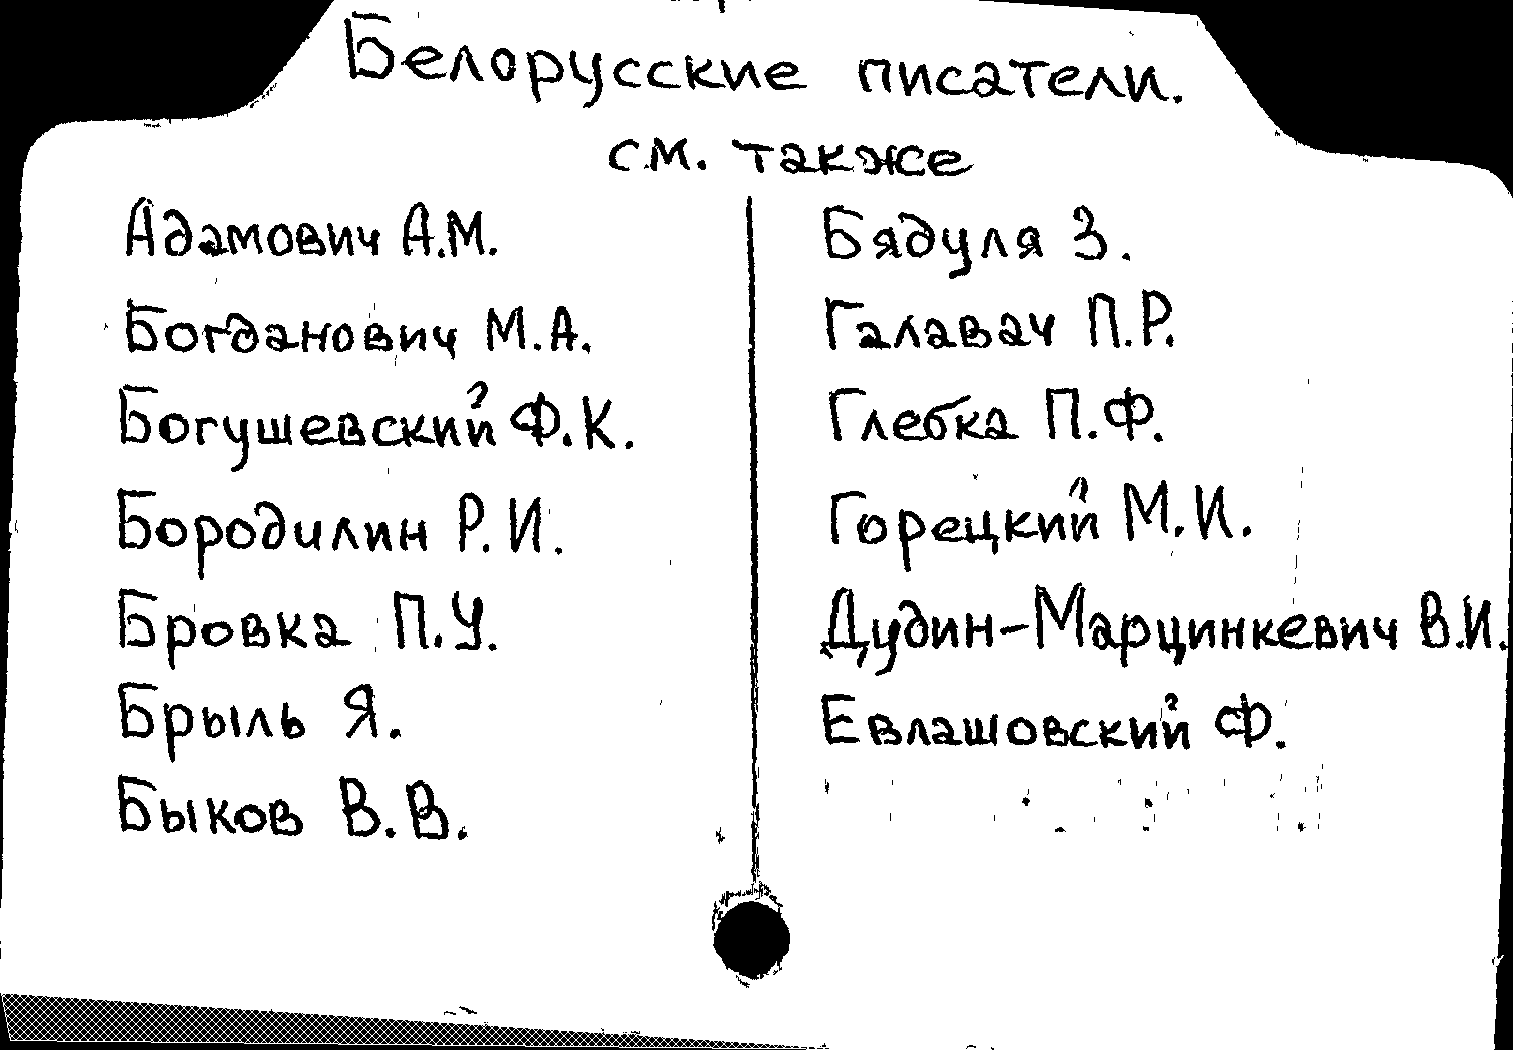 Белорусские писатели.
см. также
Адамович А.М.
Богданович М.А.
Богушевский Ф.К.
Бородилин Р.И.
Бровка П.У.
Брыль Я.
Быков В.В.
Бядуля З.
Галавач П.Р.
Глебка П.Ф.
Горецкий М.И.
Дудин-Марцинкевич В.И.
Евлашовский Ф.